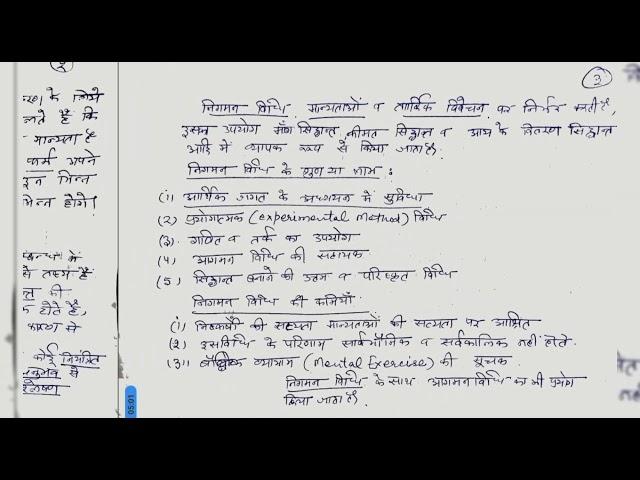 2
के लिये
हैं कि
मान्यता है
फर्म अपने
इन भिन्न
भिन्न होंगे।
तथ्य है
की
होते हैं,
कोई नियंत्रित
अनुभव से
05:01
3
निगमन विधि मान्यताओं व तार्किक विवेचन पर निर्भर करती है,
इसका उपयोग माँग सिद्धान्त, कीमत सिद्धान्त व आय के वितरण सिद्धान्त
आदि में व्यापक रूप से किया जाता है।
निगमन विधि के गुण या लाभ :
(1) आर्थिक जगत के अध्ययन में सुविधा
(2) प्रयोगात्मक (experimental Method) विधि
(3). गणित व तर्क का उपयोग
(4) आगमन विधि की सहायक
(5) सिद्धान्त बनाने की उत्तम व परिष्कृत विधि
निगमन विधि की कमियाँ
(1) निष्कर्षों की सत्यता मान्यताओं की सत्यता पर आश्रित
(2) इस विधि के परिणाम सार्वभौमिक व सर्वकालिक नहीं होते.
(3) बौद्धिक व्यायाम (Mental Exercise) की सूचक
निगमन विधि के साथ आगमन विधि का भी प्रयोग
किया जाता है.